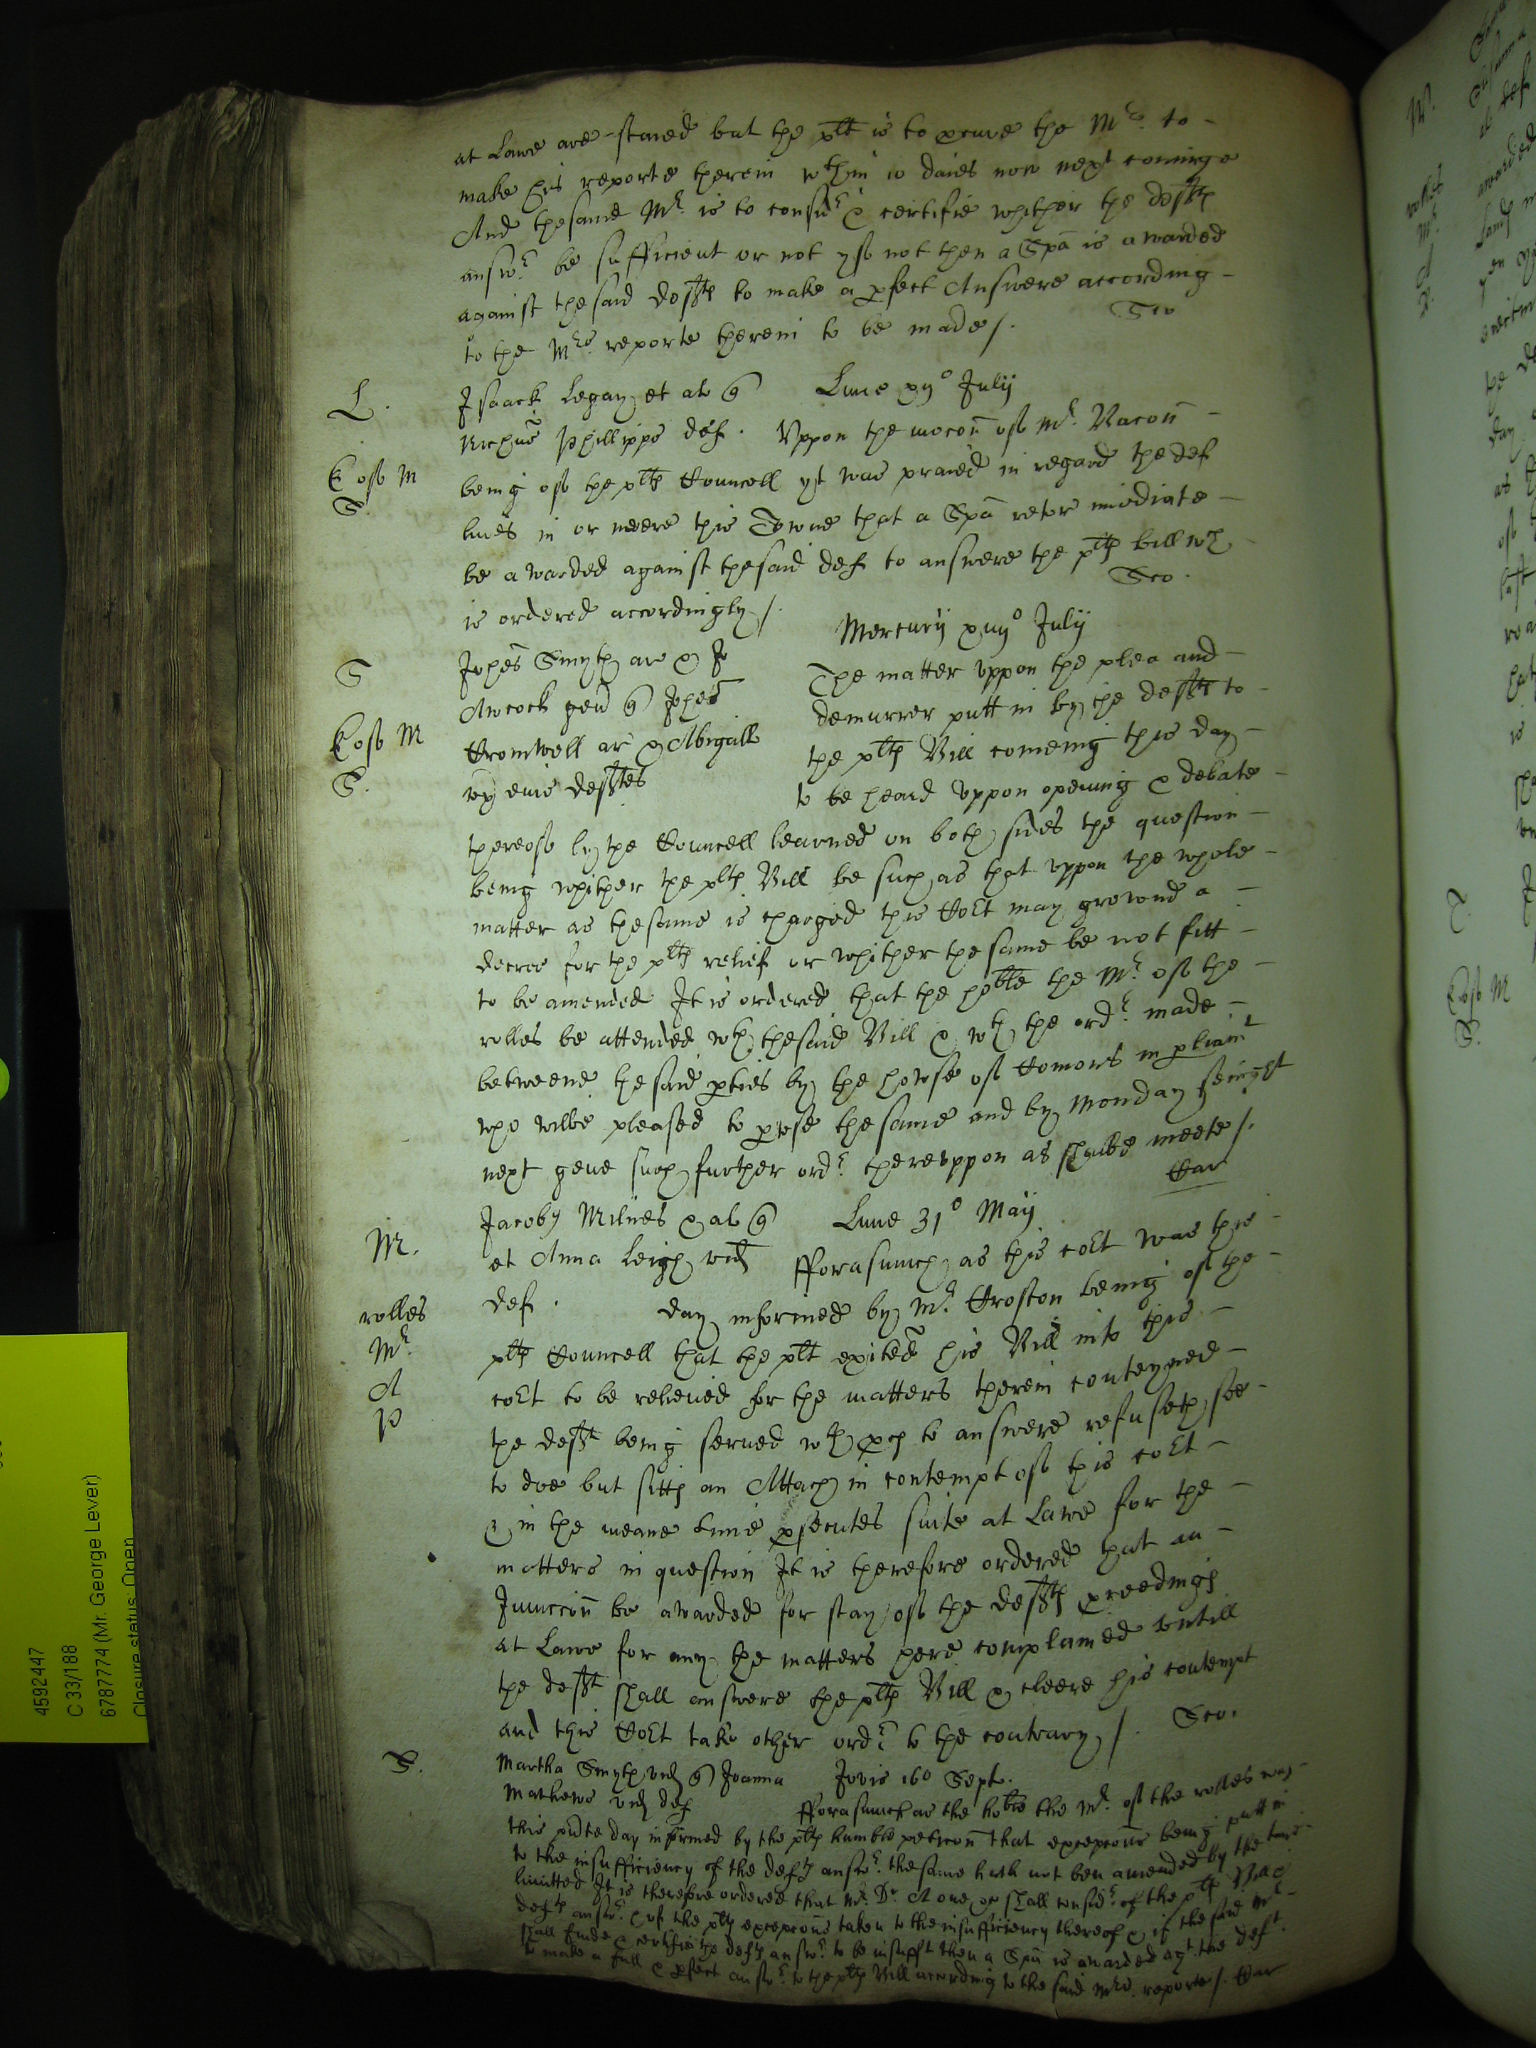 at Lawe are stared but the plt is to prcure the Mr. to
make his reporte therein wthin 10 daies now next cominge
And thesame Mr. is to consid & certifie whither the deftes
answr be sufficient or not yf not then a Spa is awarded
against thesaid deftes to make a pfect Answere according
to the Mrs. reporte therein to be made /. Sco
L. Isaack Legay et al Lune xijo Julij
Nichus Phillipps def. Uppon the mocon of Mr. Bacon
being of the pltes Councell yt was praied in regard the def
S. lives in or neere this Towne that a Spa retor imediate
be awarded against thesaid def to answere the pltes bill wch
is ordered accordingly /. Sco.
Mercurij xiiijo Julij
S Johes Smyth ar & Jo
The matter uppon the plea and
Awcock gen Johes
demurrer putt in by the deftes to
Cromwell ar & Abigaile
the pltes Bill comeing this day
S. ux eius deftes
to be heard uppon opening & debate
thereof by the Councell learned on both sides the question
being whither the pltes Bill be such as that uppon the whole
matter as thesame is charged this Cort may grownd a
decree for the pltes relief or whither thesame be not fitt
to be amended It is ordered that the hoble the Mr. of the
rolles be attended wth thesaid Bill & wth the ordr. made
betweene thesaid pties by the howse of Comons in pliamt
who wilbe pleased to pvse thesame and by Monday senight
next geve such further ordr. thereuppon as shalbe meete /.
Car
M. Jacobus Milnes & al Lune 31o Maij
et Anna Leigh vid fforasmuch as this cort was this
rolles def. day informed by Mr. Croston being of the
Mr. pltes Councell that the plt exibted his Bill into this
A cort to be relieved for the matters therein conteyned
P the deft being served wth pces to answere refuseth soe
to doe but sitts an Attach in contempt of this cort
& in the meane time psecutes suite at Lawe for the
matters in question It is therefore ordered that an
Iniunccon be awarded for stay of the deftes pceedings
at Lawe for any the matters here complained untill
the deft shall answere the pltes Bill & cleere his contempt
and this Cort take other ordr. to the contrary /. Sco.
S. Martha Smyth vid Joanna Jovis 16o Sept.
Mathews vid def fforasmuch as the hoble the Mr. of the rolles was
this pnte day informed by the pltes humble peticon that excepcons being putt in
to the insufficiency of the deftes answr. thesame hath not ben amended by the time
limitted It is therefore ordered that Mr. Dr. Amye shall consid of the pltes Bill
deftes answr. & of the pltes excepcons taken to the insufficiency thereof & if the said Mr.
shall finde & certifie the deftes answr. to be insufft then a Spa is awarded agt. the deft.
to make a full & pfect answr. to the pltes Bill according to the said Mrs. reporte /. Car
4592447
C 33/188
6787774 (Mr. George Lever)
Closure status: Open